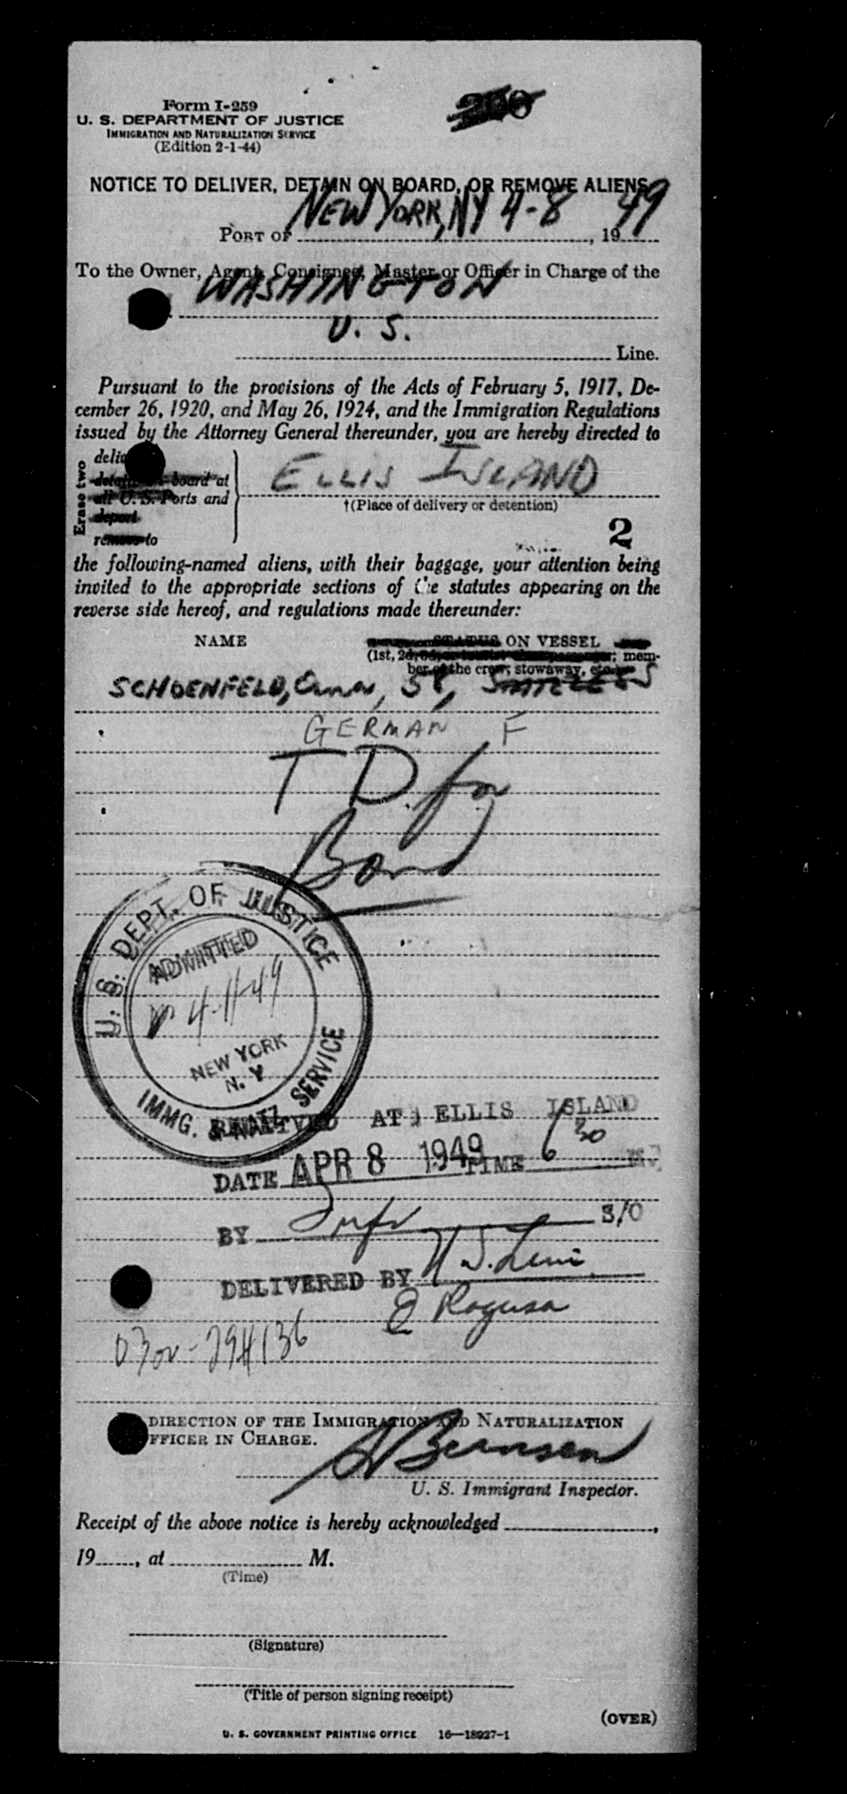 Form I-259
U. S. DEPARTMENT OF JUSTICE
IMMIGRATION AND NATURALIZATION SERVICE
(Edition 2-1-44)
NOTICE TO DELIVER, DETAIN ON BOARD, OR REMOVE ALIENS
PORT OF NEW YORK, NY 4-8, 1949
To the Owner, Agent, Consignee, Master or Officer in Charge of the
WASHINGTON
U. S. Line.
Pursuant to the provisions of the Acts of February 5, 1917, De-
cember 26, 1920, and May 26, 1924, and the Immigration Regulations
issued by the Attorney General thereunder, you are hereby directed to
Erase two
detain on board at
all U. S. Ports and
deport
remove to
ELLIS ISLAND
†(Place of delivery or detention)
2
the following-named aliens, with their baggage, your attention being
invited to the appropriate sections of the statutes appearing on the
reverse side hereof, and regulations made thereunder:
NAME STATUS ON VESSEL
(1st, mem-
ber of the crew, stowaway, etc.)
SCHOENFELD, 58, STATELESS
GERMAN F
T D. for
Bond
U. S. DEPT. OF JUSTICE
ADMITTED
4-11-49
NEW YORK
N. Y
IMMG. & NATZ. SERVICE
RECEIVED AT ELLIS ISLAND
DATE APR 8 1949 TIME 6 30 M.
BY S/O
DELIVERED BY
Ragusa
0300-294136
DIRECTION OF THE IMMIGRATION AND NATURALIZATION
OFFICER IN CHARGE.
U. S. Immigrant Inspector.
Receipt of the above notice is hereby acknowledged ,
19 , at M.
(Time)
(Signature)
(Title of person signing receipt)
(OVER)
U. S. GOVERNMENT PRINTING OFFICE 16—18927-1